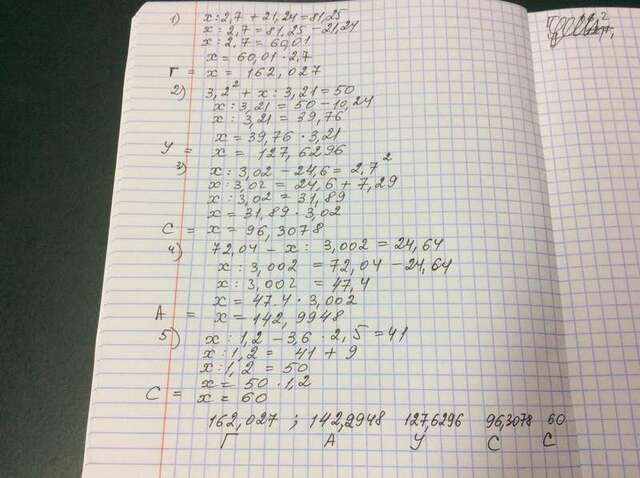 1) x : 2,7 + 21,24 = 81,25
x : 2,7 = 81,25 - 21,24
x : 2,7 = 60,01
x = 60,01 · 2,7
Г = x = 162,027
2) 3,2² + x : 3,21 = 50
x : 3,21 = 50 - 10,24
x : 3,21 = 39,76
x = 39,76 · 3,21
У = x = 127,6296
3) x : 3,02 - 24,6 = 2,7²
x : 3,02 = 24,6 + 7,29
x : 3,02 = 31,89
x = 31,89 · 3,02
С = x = 96,3078
4) 72,04 - x : 3,002 = 24,64
x : 3,002 = 72,04 - 24,64
x : 3,002 = 47,4
x = 47.4 · 3,002
А = x = 142,9948
5) x : 1,2 - 3,6 · 2,5 = 41
x : 1,2 = 41 + 9
x : 1,2 = 50
x = 50 · 1,2
С = x = 60
162,027 ; 142,9948 127,6296 96,3078 60
Г А У С С